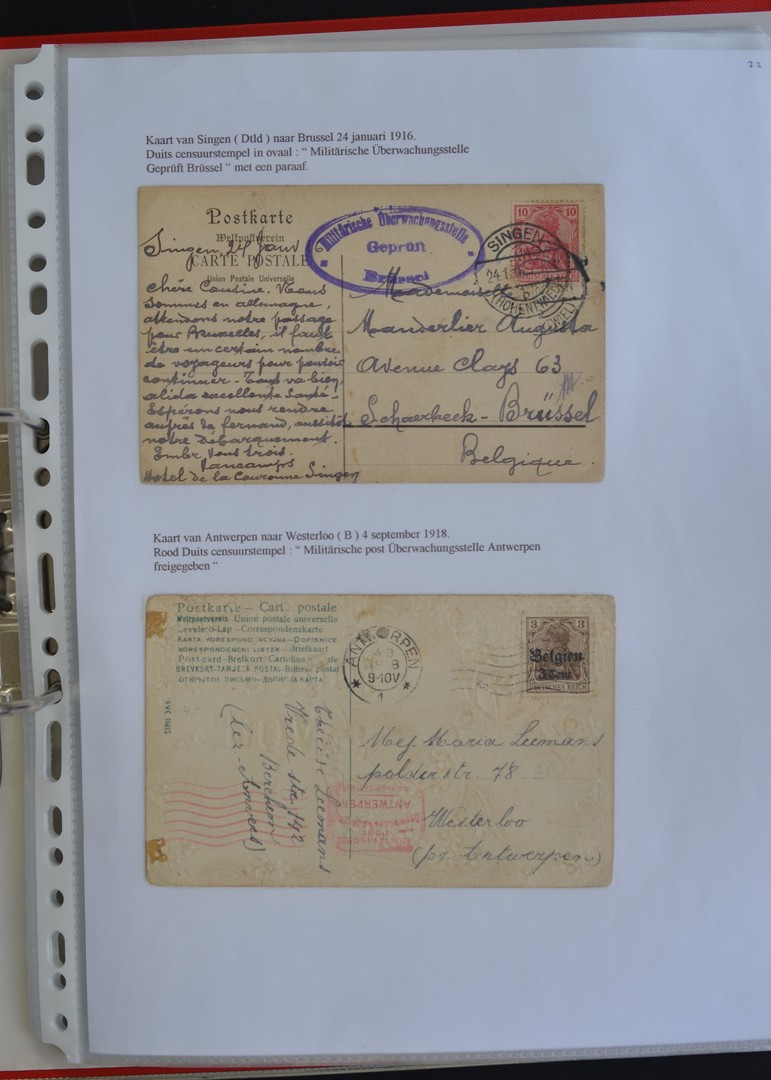 22
Kaart van Singen ( Dtld ) naar Brussel 24 januari 1916.
Duits censuurstempel in ovaal : “ Militärische Überwachungsstelle
Geprüft Brüssel “ met een paraaf.
Postkarte
Weltpostverein
CARTE POSTALE
Union Postale Universelle
Militärische Überwachungsstelle
Geprüft
Brüssel
10 10
SINGEN
24.1
(HOHENTWIEL)
Singen, 24 Janv 6
Chère Cousine. Nous
sommes en allemagne,
attendons notre passage
pour Bruxelles, il faut
être un certain nombre
de voyageurs pour pouvoir
continuer - Tous va bien,
alida excellente Santé -
Espérons nous rendre
auprès de fernand, aussitôt
notre débarquement.
Embr. Vous trois.
Vancamps
Hotel de la Couronne Singen
Mademoiselle
Manderlier Augusta
Avenue Clays 63
Schaerbeek - Brüssel
Belgique.
Kaart van Antwerpen naar Westerloo ( B ) 4 september 1918.
Rood Duits censuurstempel : “ Militärische post Überwachungsstelle Antwerpen
freigegeben “
Postkarte — Carte postale
Weltpostverein Union postale universelle
Levelező-Lap — Correspondenzkarte
KARTA KORESPONDENCYJNA — DOPISNICE
KORESPONDENČNI LISTEK — Briefkaart
Post card - Brefkort - Cartolina postale
BREVKORT - TARJETA POSTAL - Bilhete postal
ОТКРЫТОЕ ПИСЬМО — ДОПИСНА КАРТА
ANTWERPEN
9-10V
1
3 3
Belgien
3 Cent.
DEUTSCHES REICH
Therese Leemans
Vrede str. 142
Berchem
(lez - Anvers)
ANTWERPEN
Mej. Maria Leemans
polderstr. 78
Westerloo
(pr. Antwerpen)